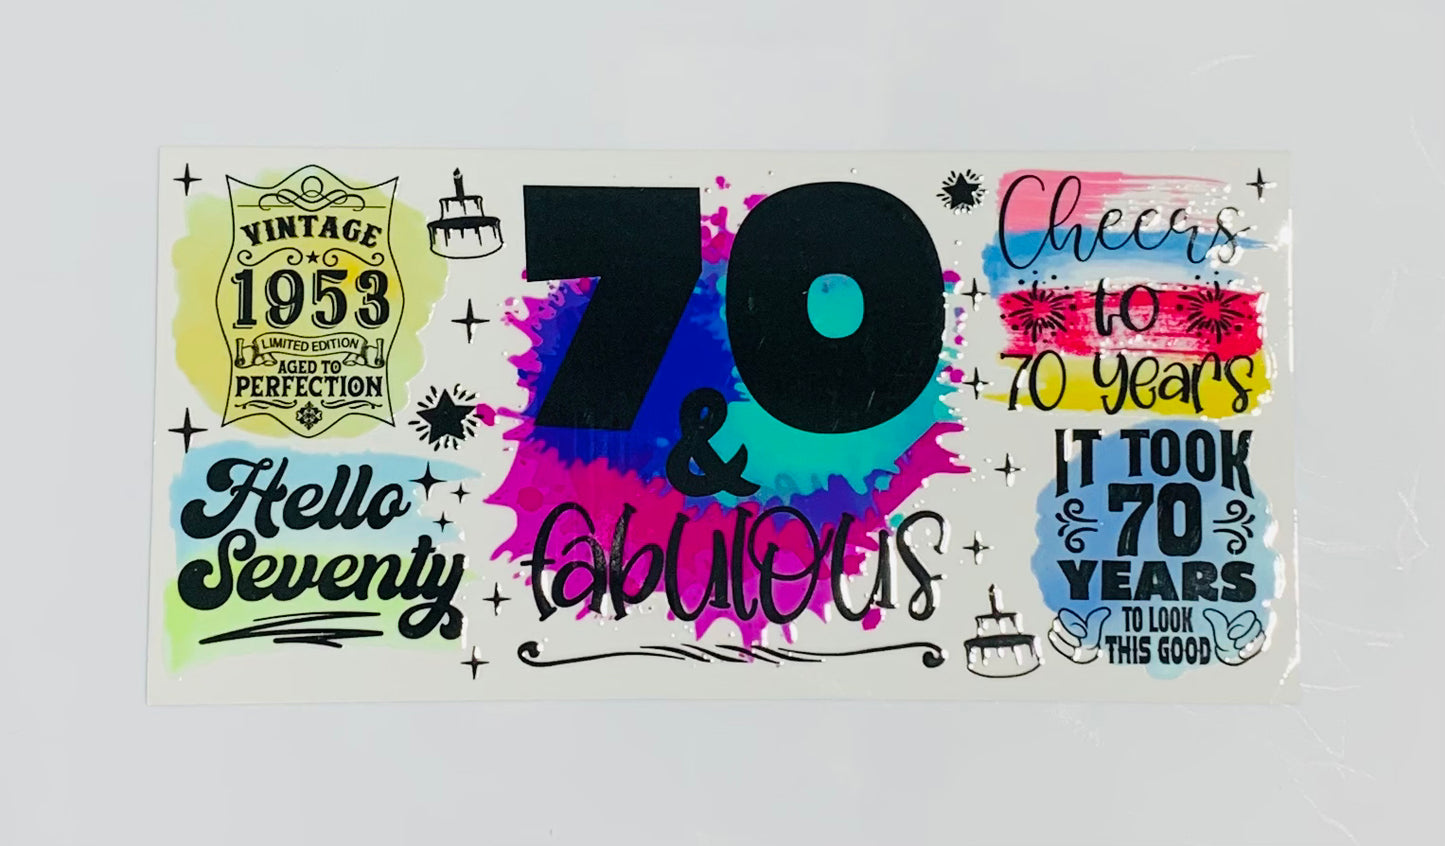 VINTAGE
1953
LIMITED EDITION
AGED TO
PERFECTION
Hello
Seventy
70
&
fabulous
Cheers
to
70 years
IT TOOK
70
YEARS
TO LOOK
THIS GOOD